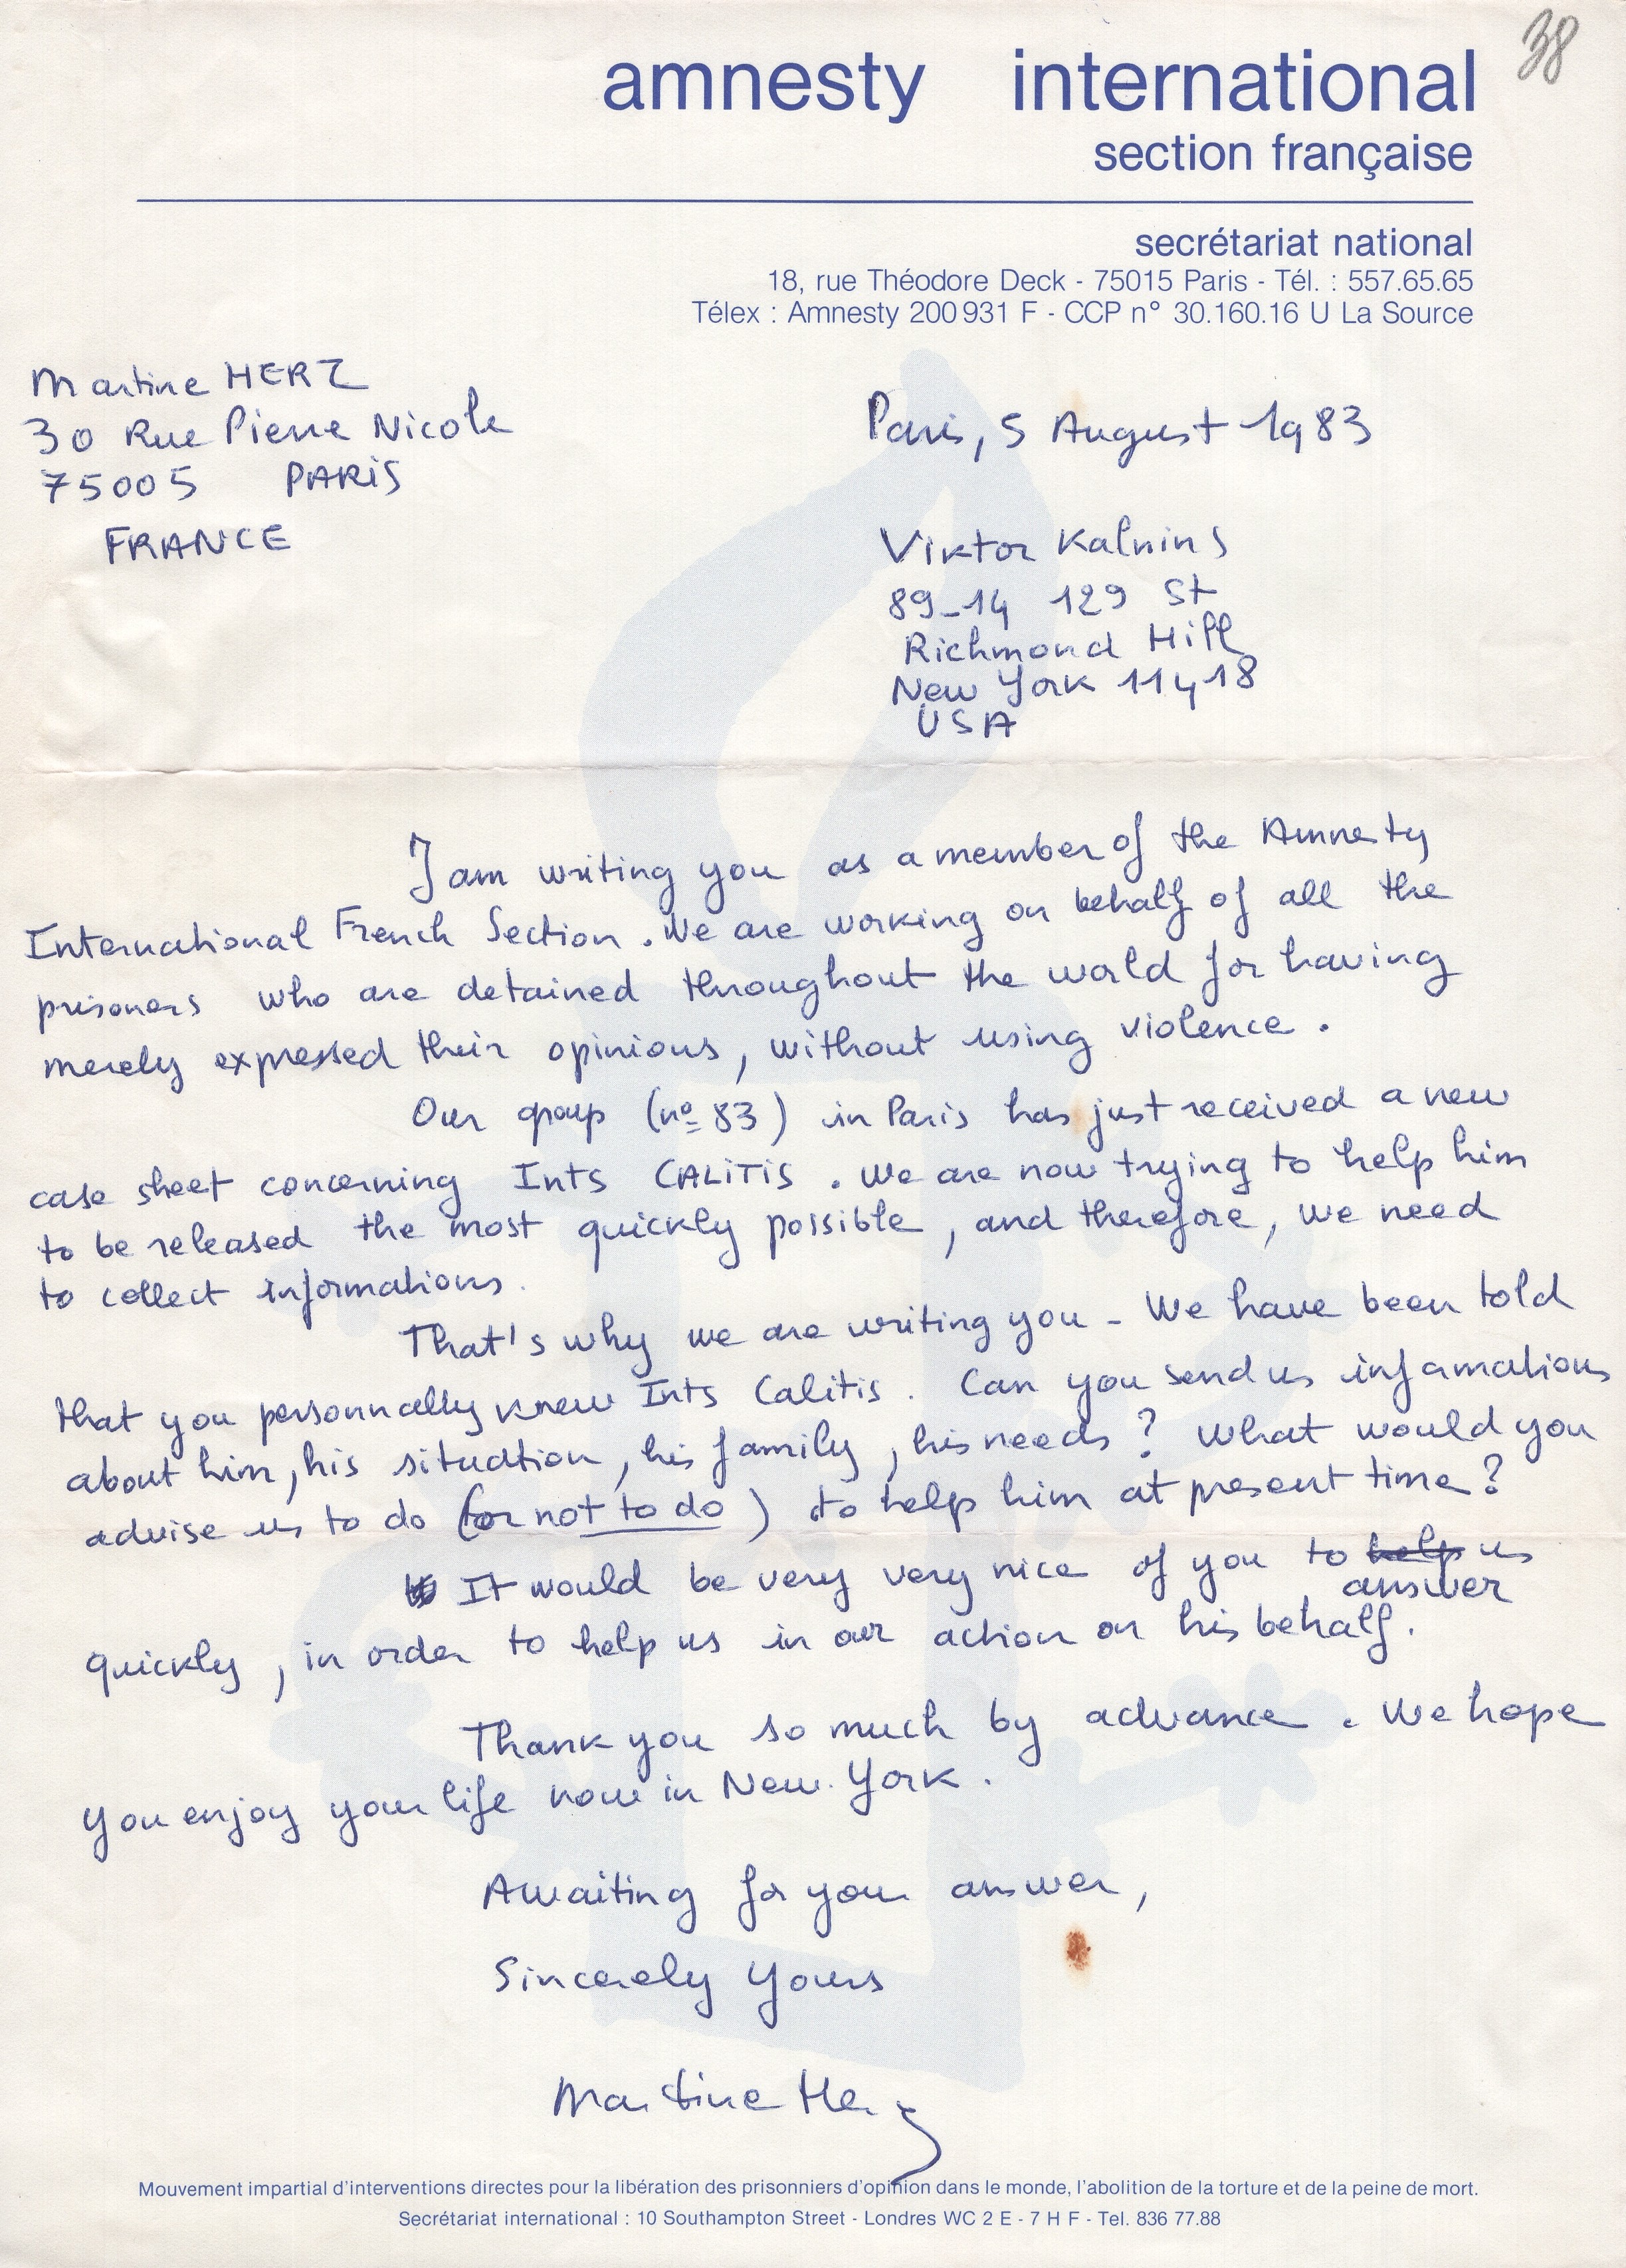 38
amnesty international
section française
secrétariat national
18, rue Théodore Deck - 75015 Paris - Tél. : 557.65.65
Télex : Amnesty 200931 F - CCP n° 30.160.16 U La Source
Martine HERZ
30 Rue Pierre Nicole
75005 PARIS
FRANCE
Paris, 5 August 1983
Viktor Kalnins
89-14 129 St
Richmond Hill
New York 11418
USA
I am writing you as a member of the Amnesty
International French Section. We are working on behalf of all the
prisoners who are detained throughout the world for having
merely expressed their opinions, without using violence.
Our group (nº 83) in Paris has just received a new
case sheet concerning Ints CALITIS. We are now trying to help him
to be released the most quickly possible, and therefore, we need
to collect informations.
That's why we are writing you - We have been told
that you personnally knew Ints Calitis. Can you send us informations
about him, his situation, his family, his needs? What would you
advise us to do (or not to do) to help him at present time?
It would be very very nice of you to help us
answer
quickly, in order to help us in our action on his behalf.
Thank you so much by advance. We hope
you enjoy your life now in New York.
Awaiting for your answer,
Sincerely Yours
Martine Herz
Mouvement impartial d'interventions directes pour la libération des prisonniers d'opinion dans le monde, l'abolition de la torture et de la peine de mort.
Secrétariat international : 10 Southampton Street - Londres WC 2 E - 7 H F - Tel. 836 77.88